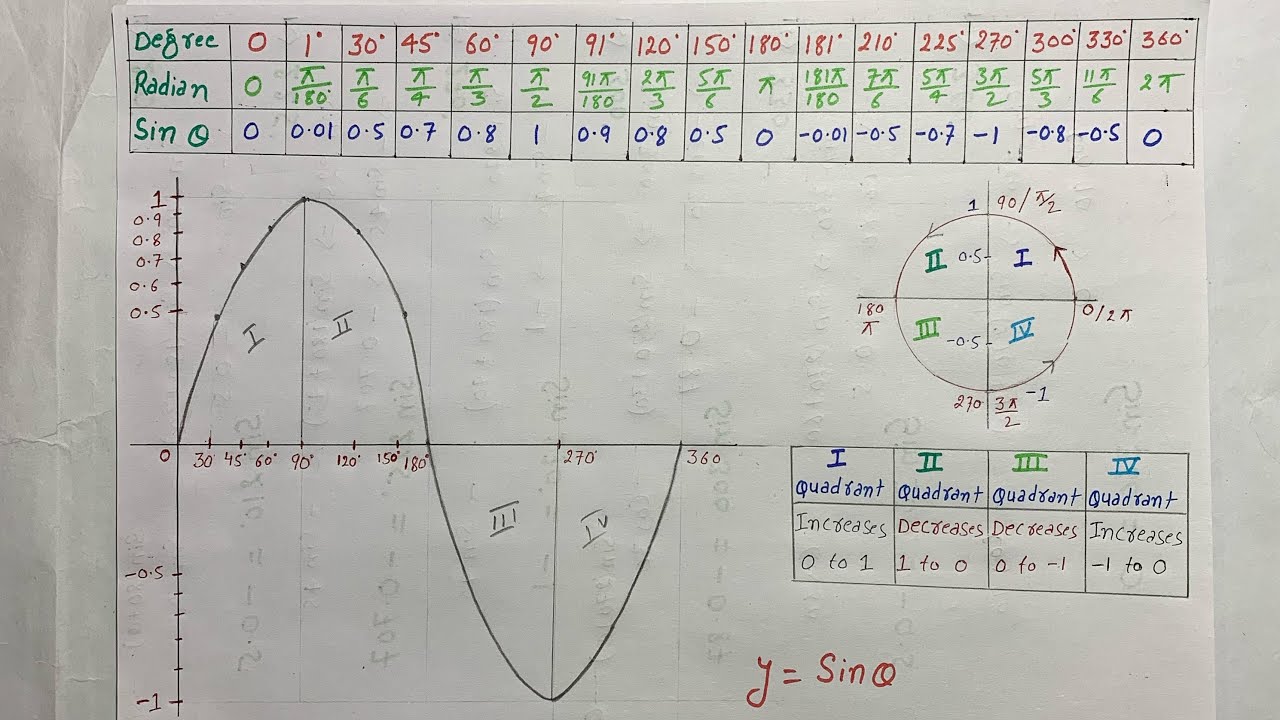 Degree 0 1° 30° 45° 60° 90° 91° 120° 150° 180° 181° 210° 225° 270° 300° 330° 360°
Radian 0 π/180° π/6 π/4 π/3 π/2 91π/180 2π/3 5π/6 π 181π/180 7π/6 5π/4 3π/2 5π/3 11π/6 2π
Sin θ 0 0.01 0.5 0.7 0.8 1 0.9 0.8 0.5 0 -0.01 -0.5 -0.7 -1 -0.8 -0.5 0
1
0.9
0.8
0.7
0.6
0.5
I II
0 30° 45° 60° 90° 120° 150° 180° 270° 360
III IV
-0.5
-1
1 90/π/2
II 0.5 I
180 0/2π
π
III -0.5 IV
270 3π/2 -1
I II III IV
Quadrant Quadrant Quadrant Quadrant
Increases Decreases Decreases Increases
0 to 1 1 to 0 0 to -1 -1 to 0
y = Sin θ